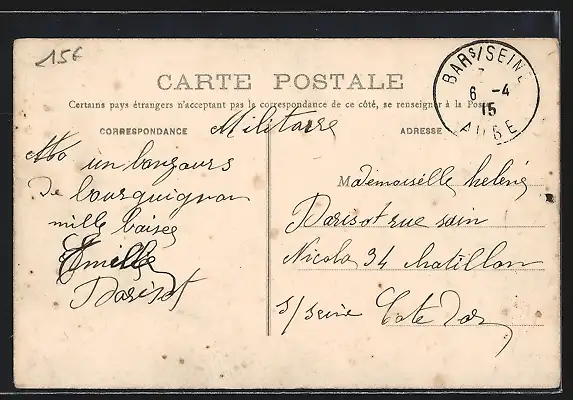 15€
CARTE POSTALE
Certains pays étrangers n'acceptant pas la correspondance de ce côté, se renseigner à la Poste
CORRESPONDANCE
Militaire
ADRESSE
BAR S/SEINE
6 -4
15
AUBE
un bonjours
de bourguignon
mille baisés
Emille
Parisot
Mademoiselle helène
Parisot rue sain
Nicola 34 chatillon
s/ seine Cote Dor